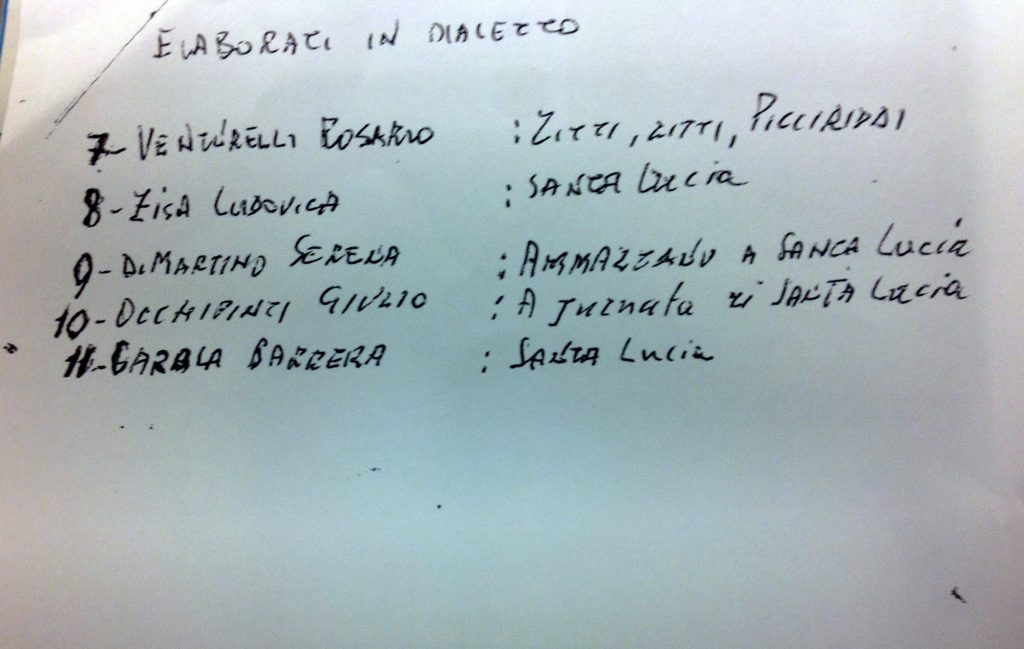 ELABORATI IN DIALETTO
7- VENTURELLI ROSARIO : ZITTI, ZITTI, PICCIRIDDI
8- ZISA LUDOVICA : SANTA LUCIA
9- DIMARTINO SERENA : AMMAZZANU A SANTA LUCIA
10- OCCHIPINTI GIULIO : A JURNATA RI SANTA LUCIA
11- BARRERA : SANTA LUCIA